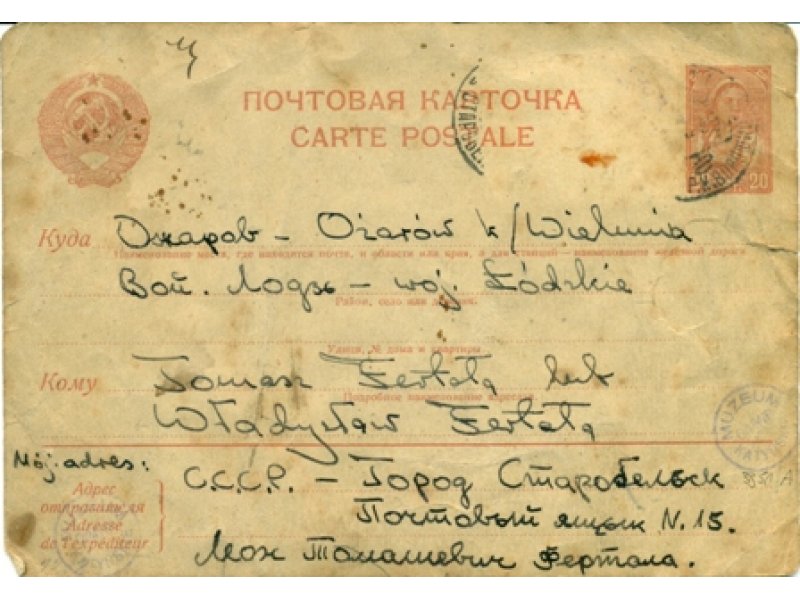 ПОЧТОВАЯ КАРТОЧКА
CARTE POSTALE
20
Куда Ожаров – Ożarów k/Wielunia
Наименование места, где находится почта, и области или края, а для станций – наименование железной дороги
Вой. Лодзь – woj. Łódzkie
Район, село или деревня
Улица, № дома и квартиры
Кому Tomasz Fertała lub
Подробное наименование адресата
Władysław Fertała
MUZEUM
Mój adres:
С.С.С.Р. – Город Старобельск
Адрес отправителя
Adresse de l'expéditeur
Почтовый ящык N. 15.
Томашевич Фертала.